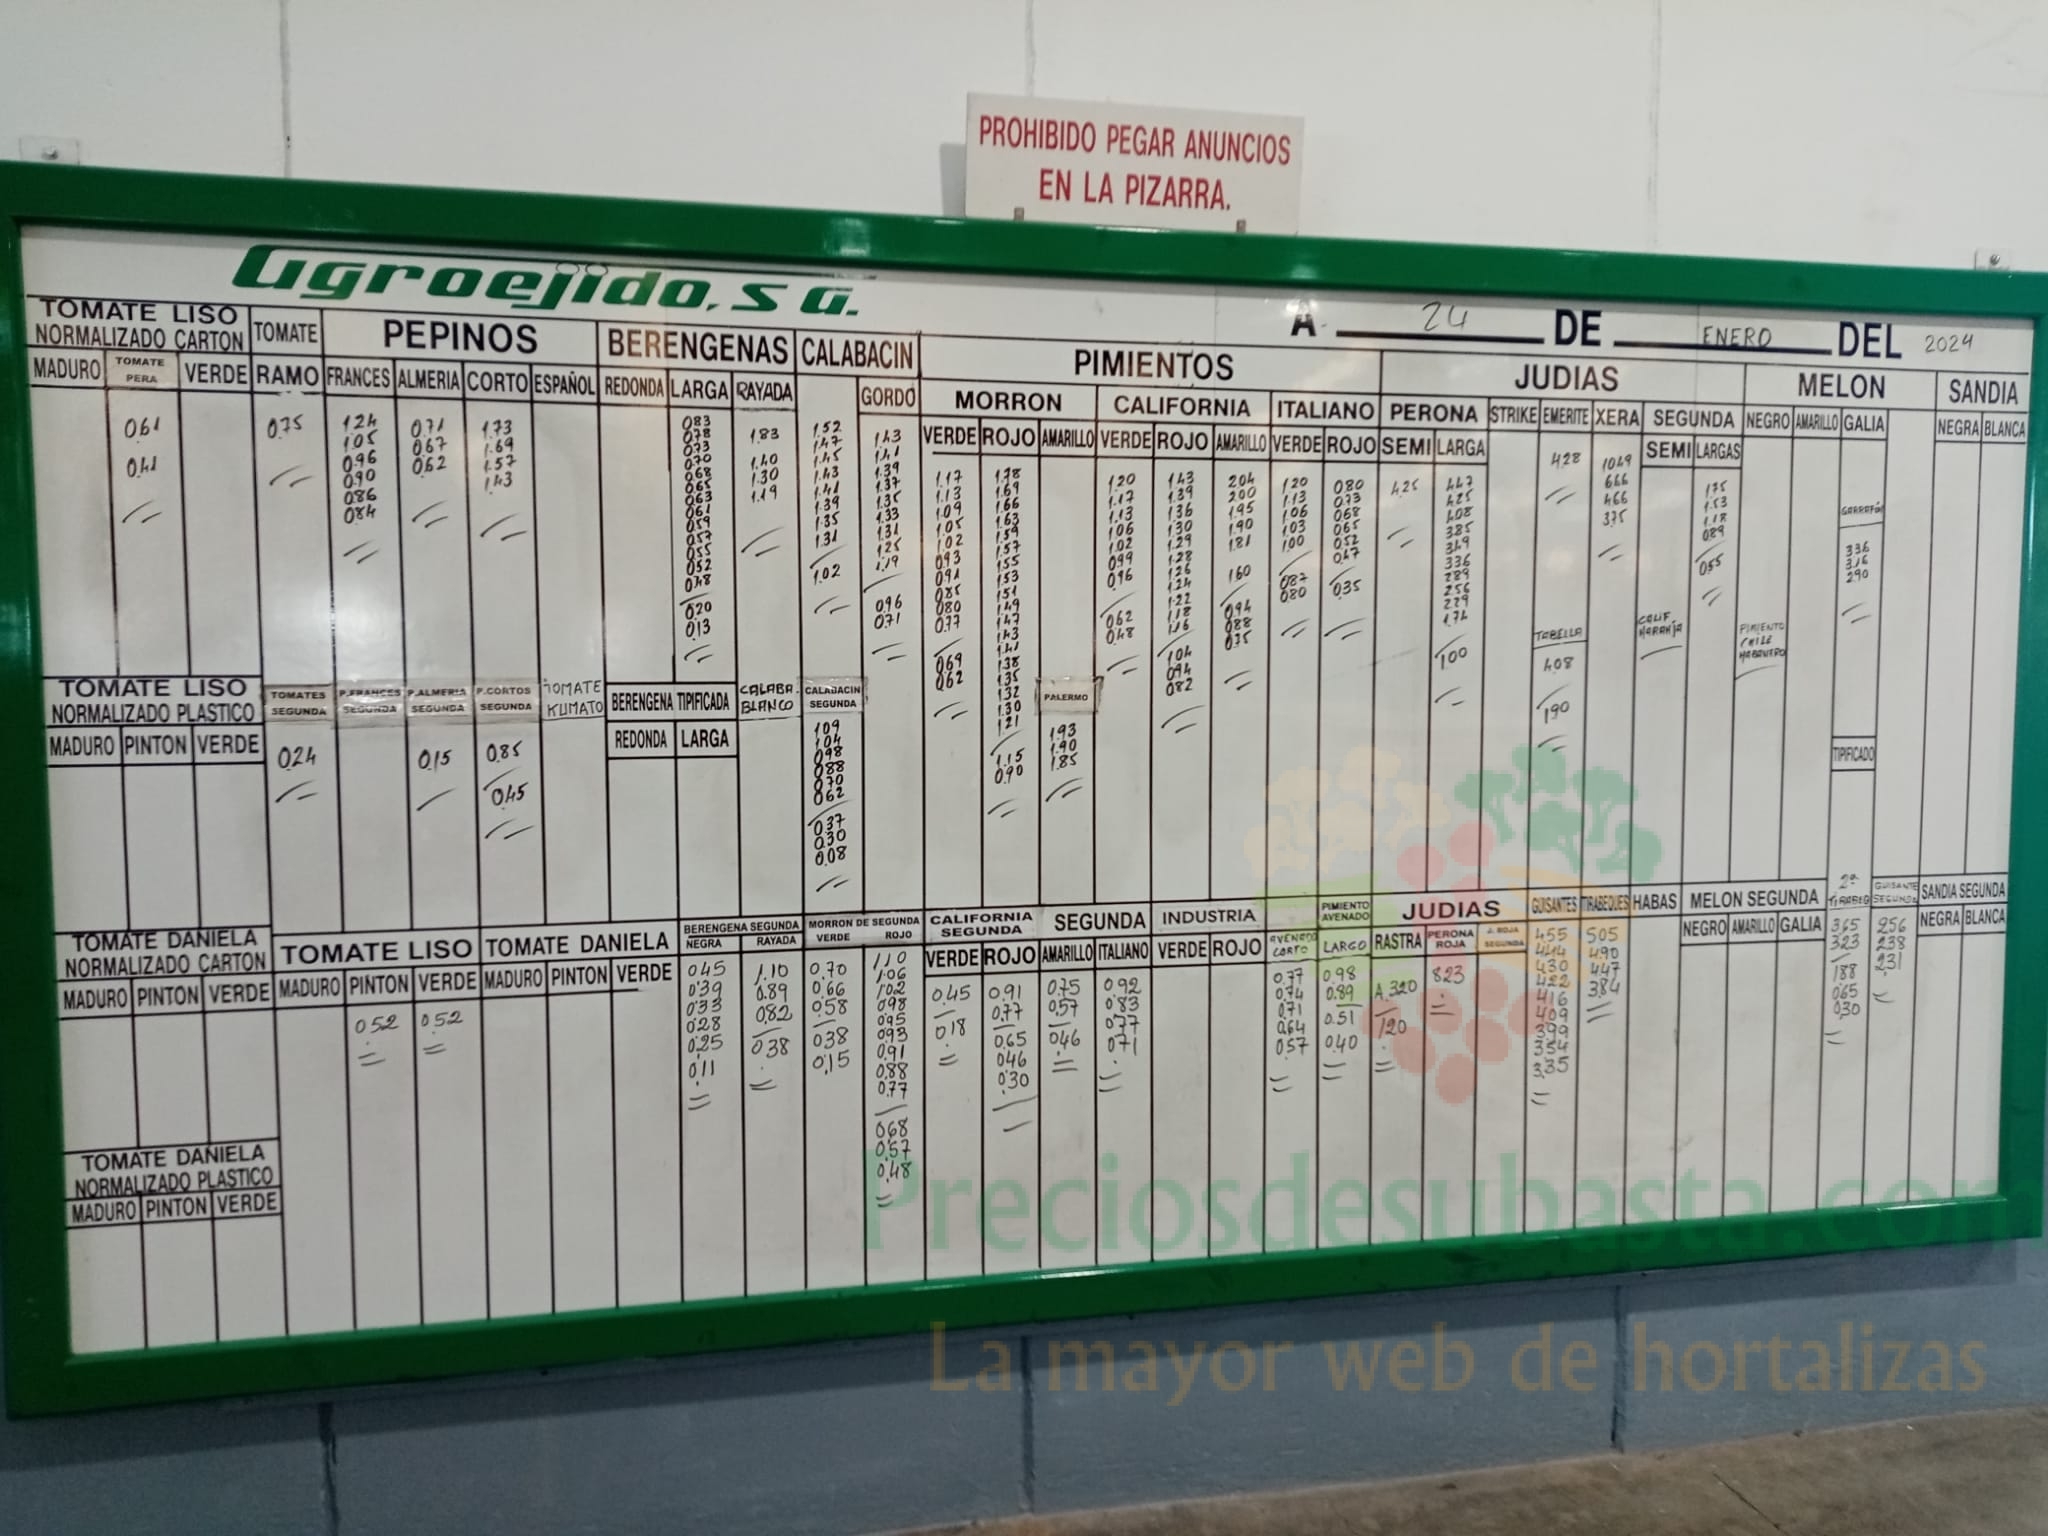 PROHIBIDO PEGAR ANUNCIOS
EN LA PIZARRA.
agroejido, s a.
A 24 DE ENERO DEL 2024
TOMATE LISO
NORMALIZADO CARTON
MADURO TOMATE PERA VERDE
061
041
TOMATE
RAMO
075
PEPINOS
FRANCES ALMERIA CORTO ESPAÑOL
124 071 1.73
105 067 1.69
096 062 1.57
090 1.43
086
084
BERENGENAS
REDONDA LARGA RAYADA
083
078
073
070
068
065
063
061
059
057
055
052
048
020
013
1.83
1.40
1.30
1.19
CALABACIN
1.52
1.47
1.45
1.43
1.41
1.39
1.35
1.31
1.02
GORDO
1.43
1.41
1.39
1.37
1.35
1.33
1.31
1.25
1.19
096
071
PIMIENTOS
MORRON
VERDE ROJO AMARILLO
1.17
1.13
1.09
1.05
1.02
093
091
085
080
077
069
062
1.78
1.69
1.66
1.63
1.59
1.57
1.55
1.53
1.51
1.49
1.47
1.43
1.41
1.38
1.35
1.32
1.30
1.21
1.15
090
PALERMO
1.93
1.90
1.85
CALIFORNIA
VERDE ROJO AMARILLO
1.20
1.17
1.13
106
1.02
099
096
062
048
1.43
1.39
1.36
1.30
1.29
1.28
1.26
1.24
1.22
1.18
1.16
1.04
094
082
204
200
1.95
1.90
1.81
160
094
088
035
ITALIANO
VERDE ROJO
1.20
1.13
1.06
1.03
1.00
087
080
080
073
068
065
052
047
035
JUDIAS
PERONA
SEMI LARGA
425
447
425
408
385
349
336
289
256
229
174
100
STRIKE EMERITE XERA
428
TABELLA
408
190
1049
666
466
375
SEGUNDA
SEMI LARGAS
CALIF.
NARANJA
175
1.53
1.18
089
055
MELON
NEGRO AMARILLO GALIA
PIMIENTO
CHILE
HABANERO
GARRAFÓN
336
316
290
TIPIFICADO
SANDIA
NEGRA BLANCA
TOMATE LISO
NORMALIZADO PLASTICO
MADURO PINTON VERDE
TOMATES SEGUNDA
024
P.FRANCES SEGUNDA
P.ALMERIA SEGUNDA
015
P.CORTOS SEGUNDA
085
045
TOMATE
KUMATO
BERENGENA TIPIFICADA
REDONDA LARGA
CALABA.
BLANCO
CALABACIN SEGUNDA
109
104
098
088
070
062
037
030
008
TOMATE DANIELA
NORMALIZADO CARTON
MADURO PINTON VERDE
TOMATE LISO
MADURO PINTON VERDE
052 052
TOMATE DANIELA
MADURO PINTON VERDE
BERENGENA SEGUNDA
NEGRA RAYADA
045 1.10
039 0.89
033 082
028 038
025
011
MORRON DE SEGUNDA
VERDE ROJO
0.70
0.66
0.58
038
0,15
110
1.06
102
098
095
093
091
088
077
068
0.57
0.48
CALIFORNIA SEGUNDA
VERDE ROJO
0.45
018
0.91
0.77
0.65
046
0.30
SEGUNDA
AMARILLO ITALIANO
075 092
057 083
046 077
071
INDUSTRIA
VERDE ROJO
AVENADO
CORTO
0.77
074
071
064
057
PIMIENTO
AVENADO
LARGO
0.98
0.89
0.51
0.40
JUDIAS
RASTRA PERONA ROJA J. ROJA SEGUNDA
A.320 823
120
GUISANTES TIRABEQUES HABAS
455 505
444 490
430 447
422 384
416
409
399
354
335
MELON SEGUNDA
NEGRO AMARILLO GALIA
2ª
TIRABEQ
365
323
188
065
030
GUISANTE
SEGUNDA
256
238
231
SANDIA SEGUNDA
NEGRA BLANCA
TOMATE DANIELA
NORMALIZADO PLASTICO
MADURO PINTON VERDE
Preciosdesubasta.com
La mayor web de hortalizas